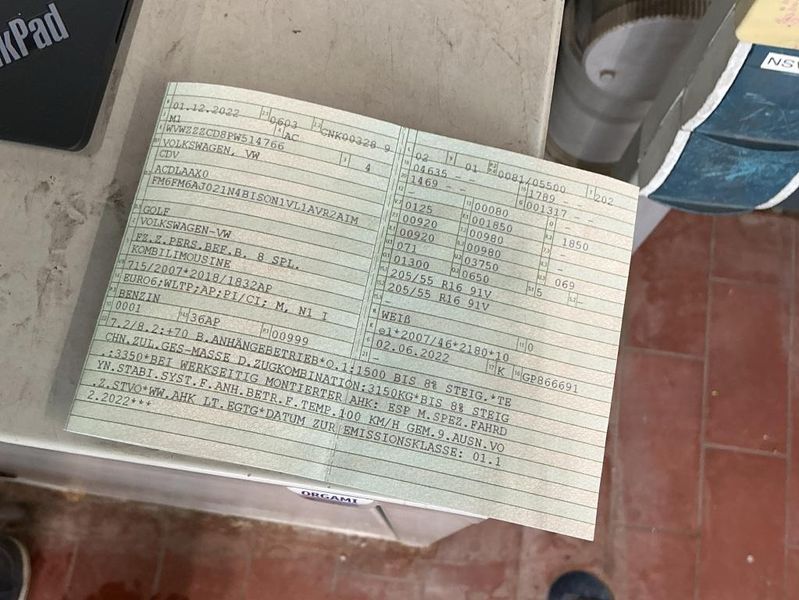 kPad
NSW
01.12.2022 0603 CNK00328 9
M1 AC
WVWZZZCD8PW514766
VOLKSWAGEN, VW 4
CDV
ACDLAAX0
FM6FM6AJ021N4BISON1VL1AVR2AIM
GOLF
VOLKSWAGEN-VW
FZ.Z.PERS.BEF.B. 8 SPL.
KOMBILIMOUSINE
715/2007*2018/1832AP
EURO6;WLTP;AP;PI/CI; M, N1 I
BENZIN
0001 36AP 00999
02 01 0081/05500 202
04635 - - 1789 - -
1469 - - 001317
0125 00080 -
00920 001850 - 1850
00920 00980 -
071 00980 -
01300 03750 - 069
0650 5 -
205/55 R16 91V
205/55 R16 91V
-
WEIß
e1*2007/46*2180*10 0
02.06.2022 K GP866691
-
7.2/8.2:+70 B.ANHÄNGEBETRIEB*O.1:1500 BIS 8% STEIG.*TE
CHN.ZUL.GES-MASSE D.ZUGKOMBINATION:3150KG*BIS 8% STEIG
.:3350*BEI WERKSEITIG MONTIERTER AHK: ESP M.SPEZ.FAHRD
YN.STABI.SYST.F.ANH.BETR.F.TEMP.100 KM/H GEM.9.AUSN.VO
.Z.STVO*WW.AHK LT.EGTG*DATUM ZUR EMISSIONSKLASSE: 01.1
2.2022***
ORGAMI